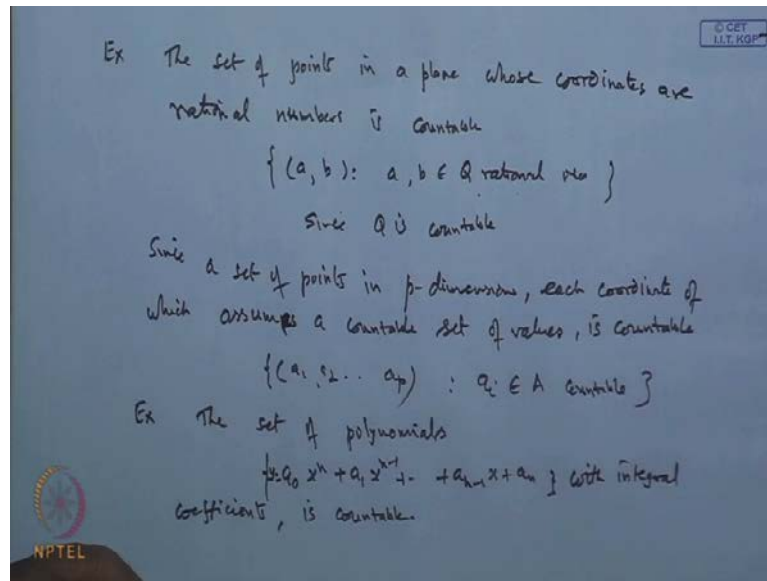 © CET
I.I.T. KGP
Ex The set of points in a plane whose coordinates are
rational numbers is countable
{(a, b): a, b ∈ Q rational nos }
Since Q is countable
Since a set of points in p-dimensions, each coordinate of
which assumes a countable set of values, is countable
{(a₁, a₂ .. aₚ) : aᵢ ∈ A countable }
Ex The set of polynomials
{y=a₀ xⁿ + a₁ xⁿ⁻¹ + - + aₙ₋₁ x + aₙ } with integral
coefficients, is countable.
NPTEL